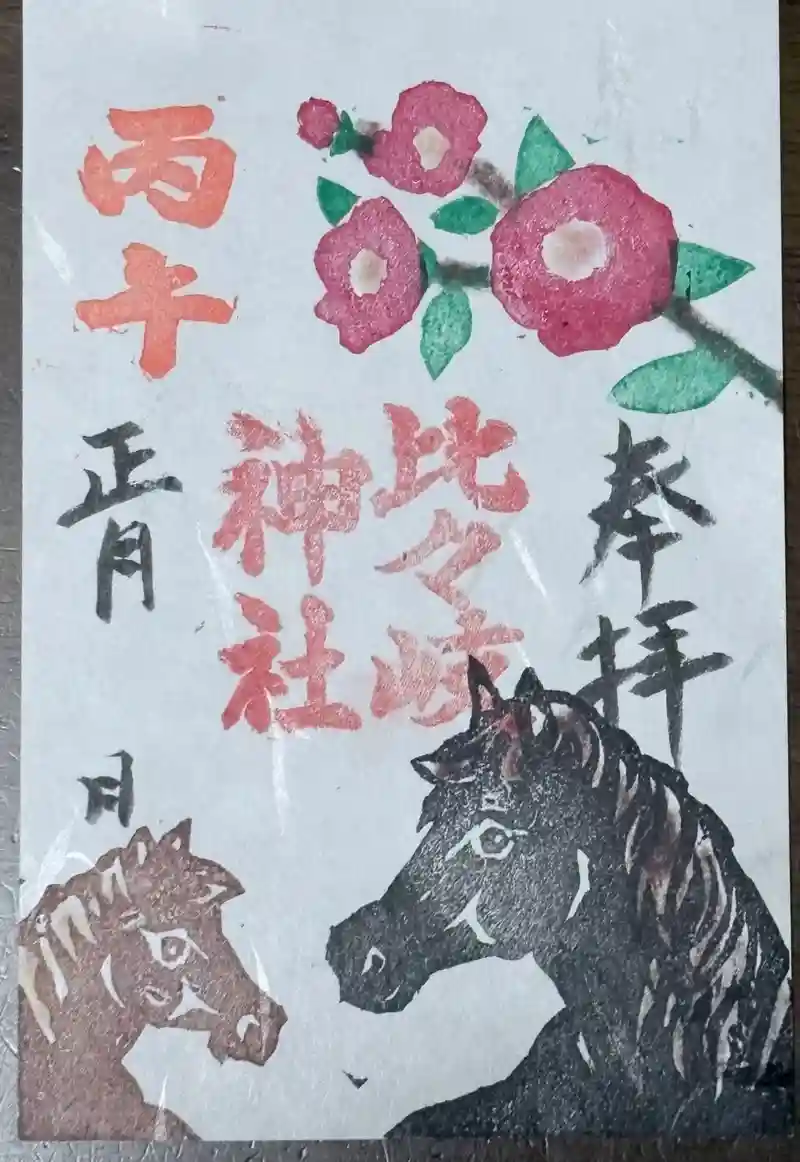 奉拝
比々岐
神社
丙午
正月 日